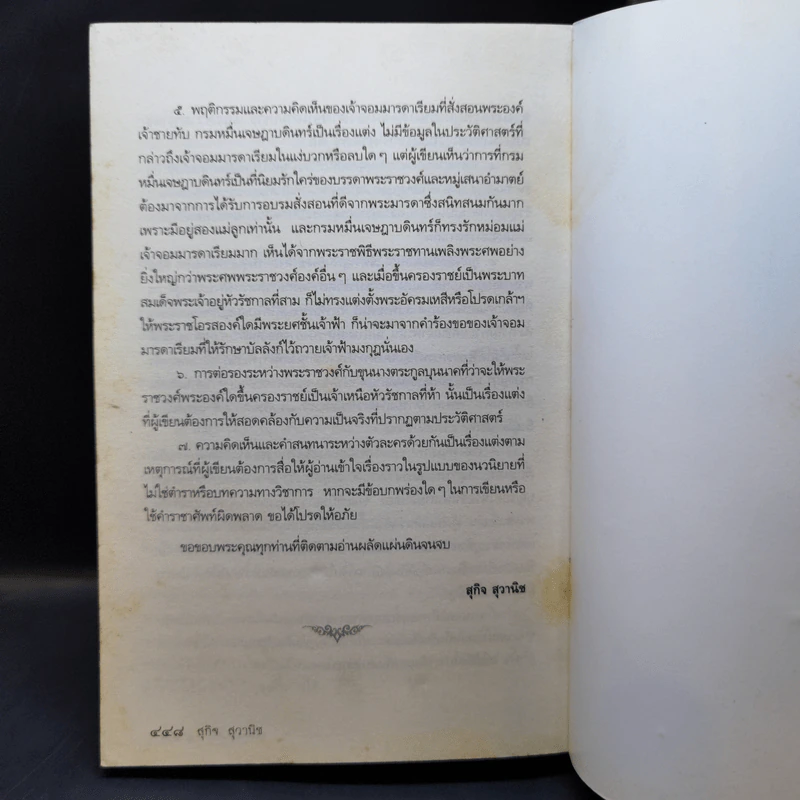 ๕. พฤติกรรมและความคิดเห็นของเจ้าจอมมารดาเรียมที่สั่งสอนพระองค์
เจ้าชายทับ กรมหมื่นเจษฎาบดินทร์เป็นเรื่องแต่ง ไม่มีข้อมูลในประวัติศาสตร์ที่
กล่าวถึงเจ้าจอมมารดาเรียมในแง่บวกหรือลบใด ๆ แต่ผู้เขียนเห็นว่าการที่กรม
หมื่นเจษฎาบดินทร์เป็นที่นิยมรักใคร่ของบรรดาพระราชวงศ์และหมู่เสนาอำมาตย์
ต้องมาจากการได้รับการอบรมสั่งสอนที่ดีจากพระมารดาซึ่งสนิทสนมกันมาก
เพราะมีอยู่สองแม่ลูกเท่านั้น และกรมหมื่นเจษฎาบดินทร์ก็ทรงรักหม่อมแม่
เจ้าจอมมารดาเรียมมาก เห็นได้จากพระราชพิธีพระราชทานเพลิงพระศพอย่าง
ยิ่งใหญ่กว่าพระศพพระราชวงศ์องค์อื่น ๆ และเมื่อขึ้นครองราชย์เป็นพระบาท
สมเด็จพระเจ้าอยู่หัวรัชกาลที่สาม ก็ไม่ทรงแต่งตั้งพระอัครมเหสีหรือโปรดเกล้าฯ
ให้พระราชโอรสองค์ใดมีพระยศชั้นเจ้าฟ้า ก็น่าจะมาจากคำร้องขอของเจ้าจอม
มารดาเรียมที่ให้รักษาบัลลังก์ไว้ถวายเจ้าฟ้ามงกุฎนั่นเอง
๖. การต่อรองระหว่างพระราชวงศ์กับขุนนางตระกูลบุนนาคที่ว่าจะให้พระ
ราชวงศ์พระองค์ใดขึ้นครองราชย์เป็นเจ้าเหนือหัวรัชกาลที่ห้า นั้นเป็นเรื่องแต่ง
ที่ผู้เขียนต้องการให้สอดคล้องกับความเป็นจริงที่ปรากฏตามประวัติศาสตร์
๗. ความคิดเห็นและคำสนทนาระหว่างตัวละครด้วยกันเป็นเรื่องแต่งตาม
เหตุการณ์ที่ผู้เขียนต้องการสื่อให้ผู้อ่านเข้าใจเรื่องราวในรูปแบบของนวนิยายที่
ไม่ใช่ตำราหรือบทความทางวิชาการ หากจะมีข้อบกพร่องใด ๆ ในการเขียนหรือ
ใช้คำราชาศัพท์ผิดพลาด ขอได้โปรดให้อภัย
ขอขอบพระคุณทุกท่านที่ติดตามอ่านผลัดแผ่นดินจนจบ
สุกิจ สุวานิช
๔๔๘ สุกิจ สุวานิช